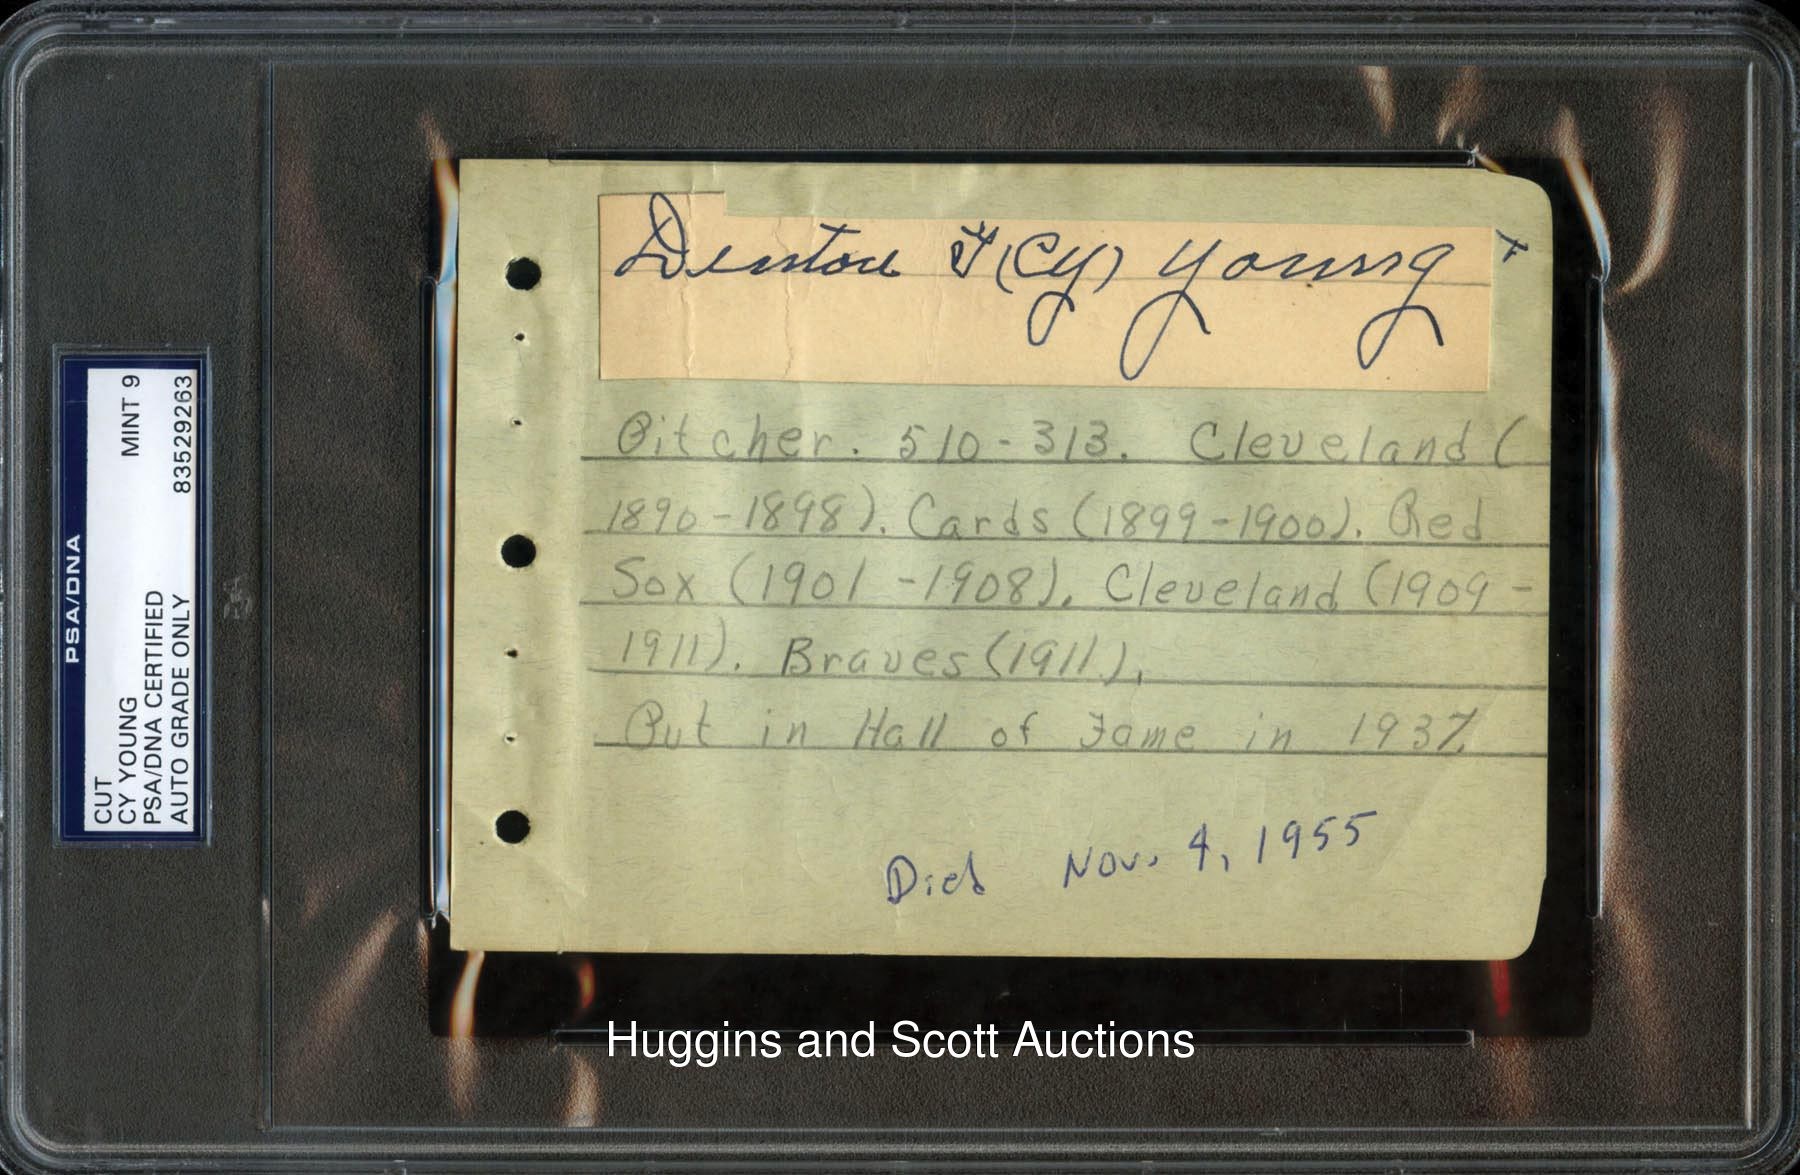 PSA/DNA
CUT
CY YOUNG
PSA/DNA CERTIFIED
AUTO GRADE ONLY
MINT 9
83529263
Denton T (Cy) Young
Pitcher. 510-313. Cleveland (
1890-1898). Cards (1899-1900). Red
Sox (1901-1908). Cleveland (1909-
1911). Braves (1911).
Put in Hall of Fame in 1937.
Died Nov. 4, 1955
Huggins and Scott Auctions